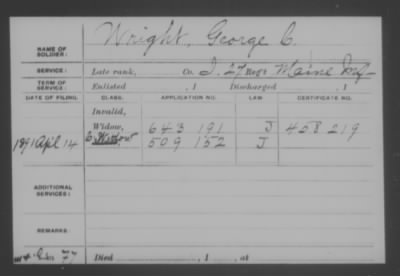 Wright, George C.
NAME OF SOLDIER:
SERVICE: Late rank, Co. I. 27 Reg't Maine Inf
TERM OF SERVICE: Enlisted , 1 Discharged , 1
DATE OF FILING. CLASS. APPLICATION NO. LAW CERTIFICATE NO.
Invalid,
Widow, 643 191 J 458 219
1891 Apl 14 509 152 J
ADDITIONAL SERVICES:
REMARKS:
77 Died , 1 , at